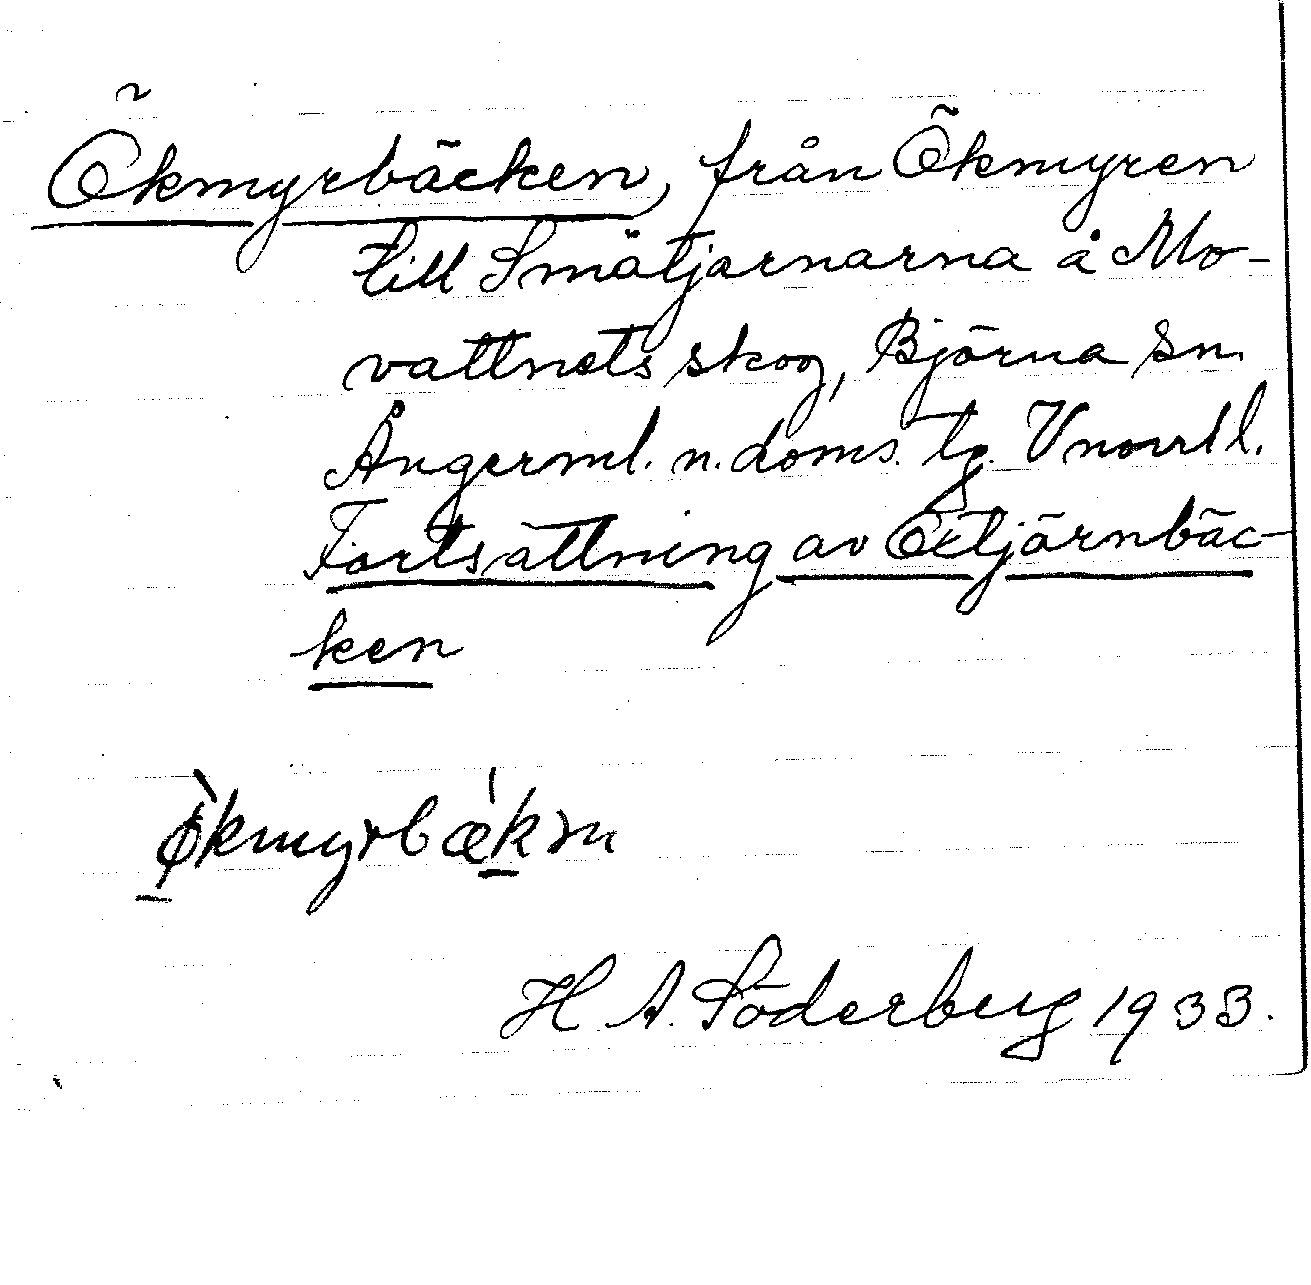 Ökmyrbäcken, från Ökmyren
till Småtjärnarna å Mo-
vattnets skog, Björna sn.
Ångerml. n. doms. tg. Vnorrl l.
Fortsättning av Öxtjärnbäc-
ken
ø̀kmyrbækɜn
H. A. Söderberg 1933.